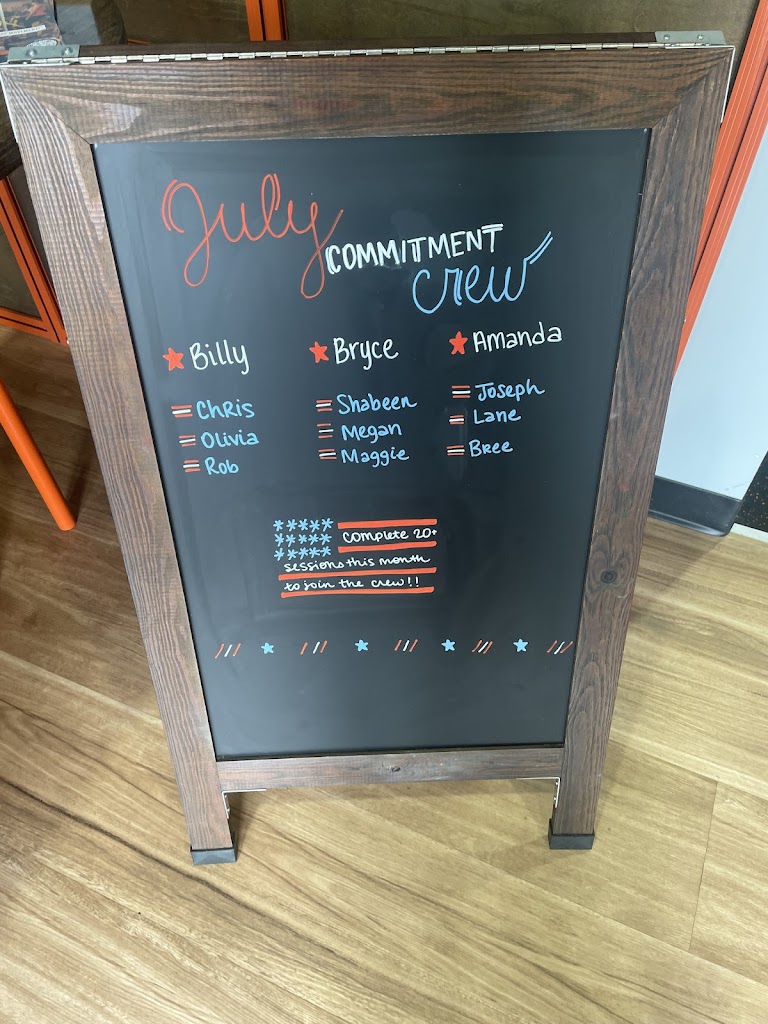 July
COMMITMENT
crew
Billy
Bryce
Amanda
Chris
Olivia
Rob
Shabeen
Megan
Maggie
Joseph
Lane
Bree
complete 20+
sessions this month
to join the crew!!